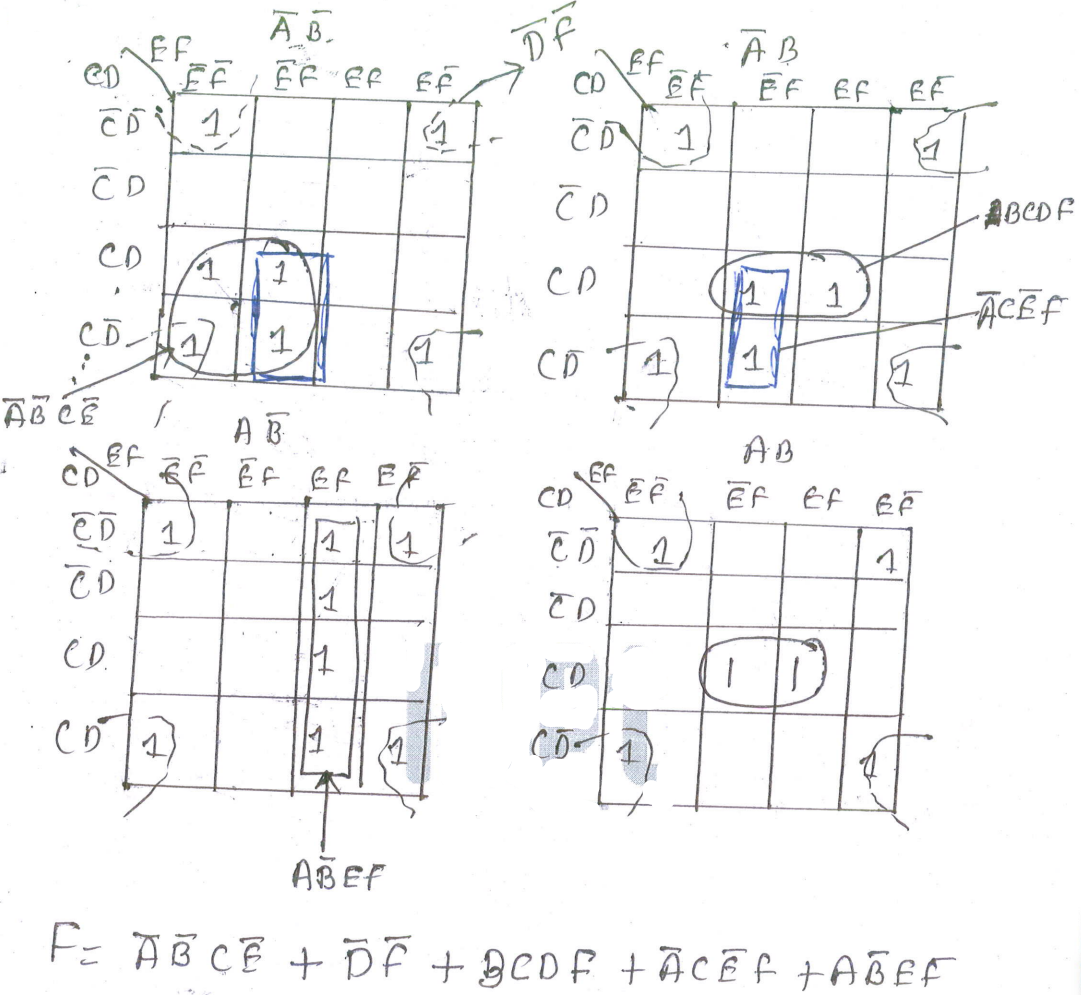 A̅ B̅
EF
CD
E̅F̅ E̅F EF EF̅
C̅D̅ 1 1
C̅D
CD 1 1
CD̅ 1 1 1
D̅F̅
A̅B̅CE̅
A̅ B
EF
CD
E̅F̅ E̅F EF EF̅
C̅D̅ 1 1
C̅D
CD 1 1
CD̅ 1 1 1
BCDF
A̅CE̅F
AB̅
EF
CD
E̅F̅ E̅F EF EF̅
C̅D̅ 1 1 1
C̅D 1
CD 1
CD̅ 1 1 1
AB̅EF
AB
EF
CD
E̅F̅ E̅F EF EF̅
C̅D̅ 1 1
C̅D
CD 1 1
CD̅ 1 1
F= A̅B̅CE̅ + D̅F̅ + BCDF + A̅CE̅F + AB̅EF